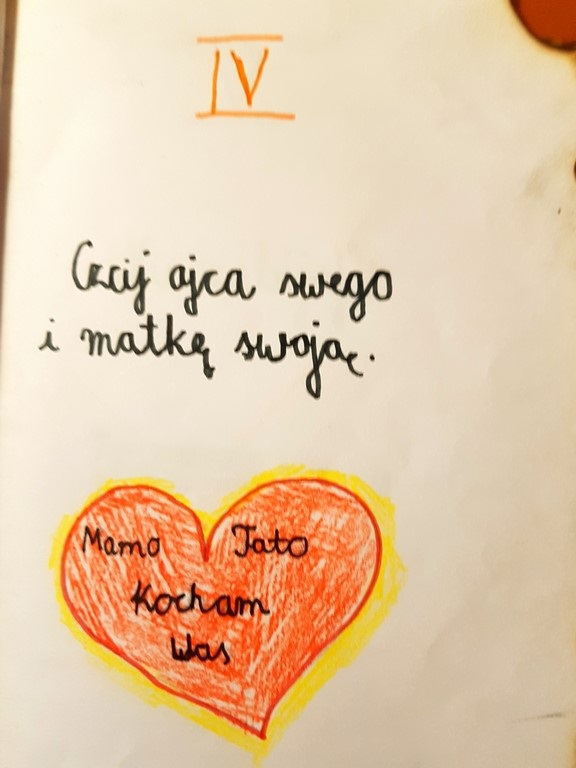 IV
Czcij ojca swego
i matkę swoją.
Mamo Tato
Kocham
Was